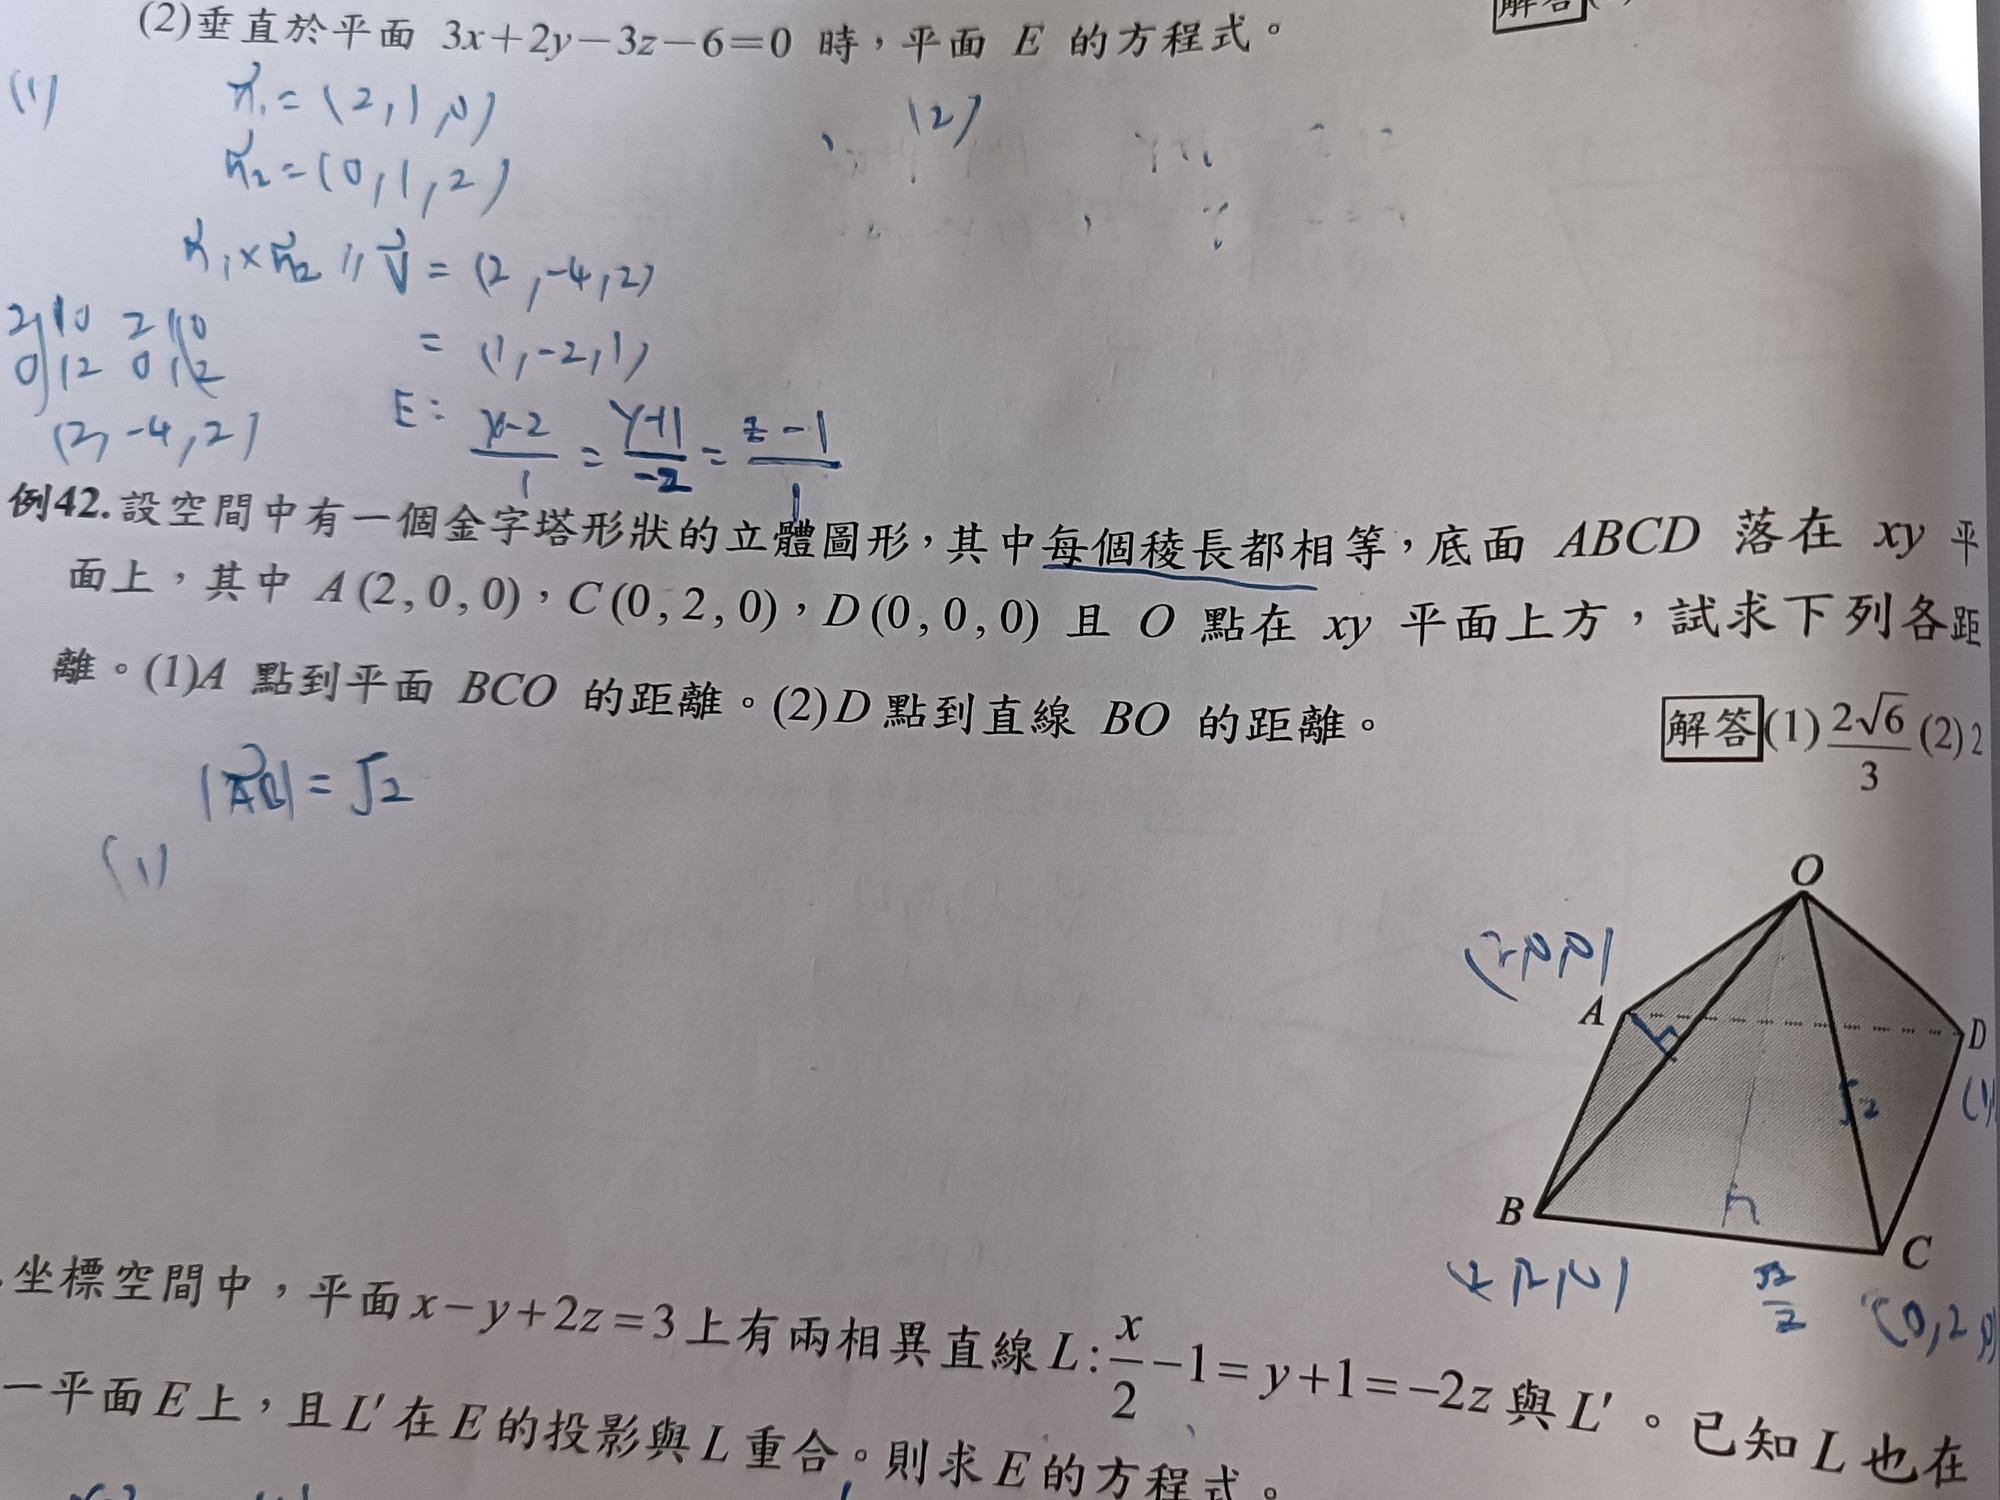 (2)垂直於平面 3x+2y−3z−6=0 時，平面 E 的方程式。
解答
(1)
n₁=(2,1,0)
n₂=(0,1,2)
n₁×n₂ // v = (2,-4,2)
= (1,-2,1)
2 1 0 2 1 0
0 1 2 0 1 2
(2,-4,2)
E: x-2/1 = y+1/-2 = z-1/1
(2)
例42.設空間中有一個金字塔形狀的立體圖形，其中每個稜長都相等，底面 ABCD 落在 xy 平
面上，其中 A(2,0,0)，C(0,2,0)，D(0,0,0) 且 O 點在 xy 平面上方，試求下列各距
離。(1)A 點到平面 BCO 的距離。(2)D 點到直線 BO 的距離。
解答 (1) 2√6/3 (2) 2
= √2
(1)
O
A
D
√2
B
C
√2/2
(0,2,0)
坐標空間中，平面 x−y+2z=3 上有兩相異直線 L: x/2 −1=y+1=−2z 與 L′。已知 L 也在
一平面 E 上，且 L′ 在 E 的投影與 L 重合。則求 E 的方程式。